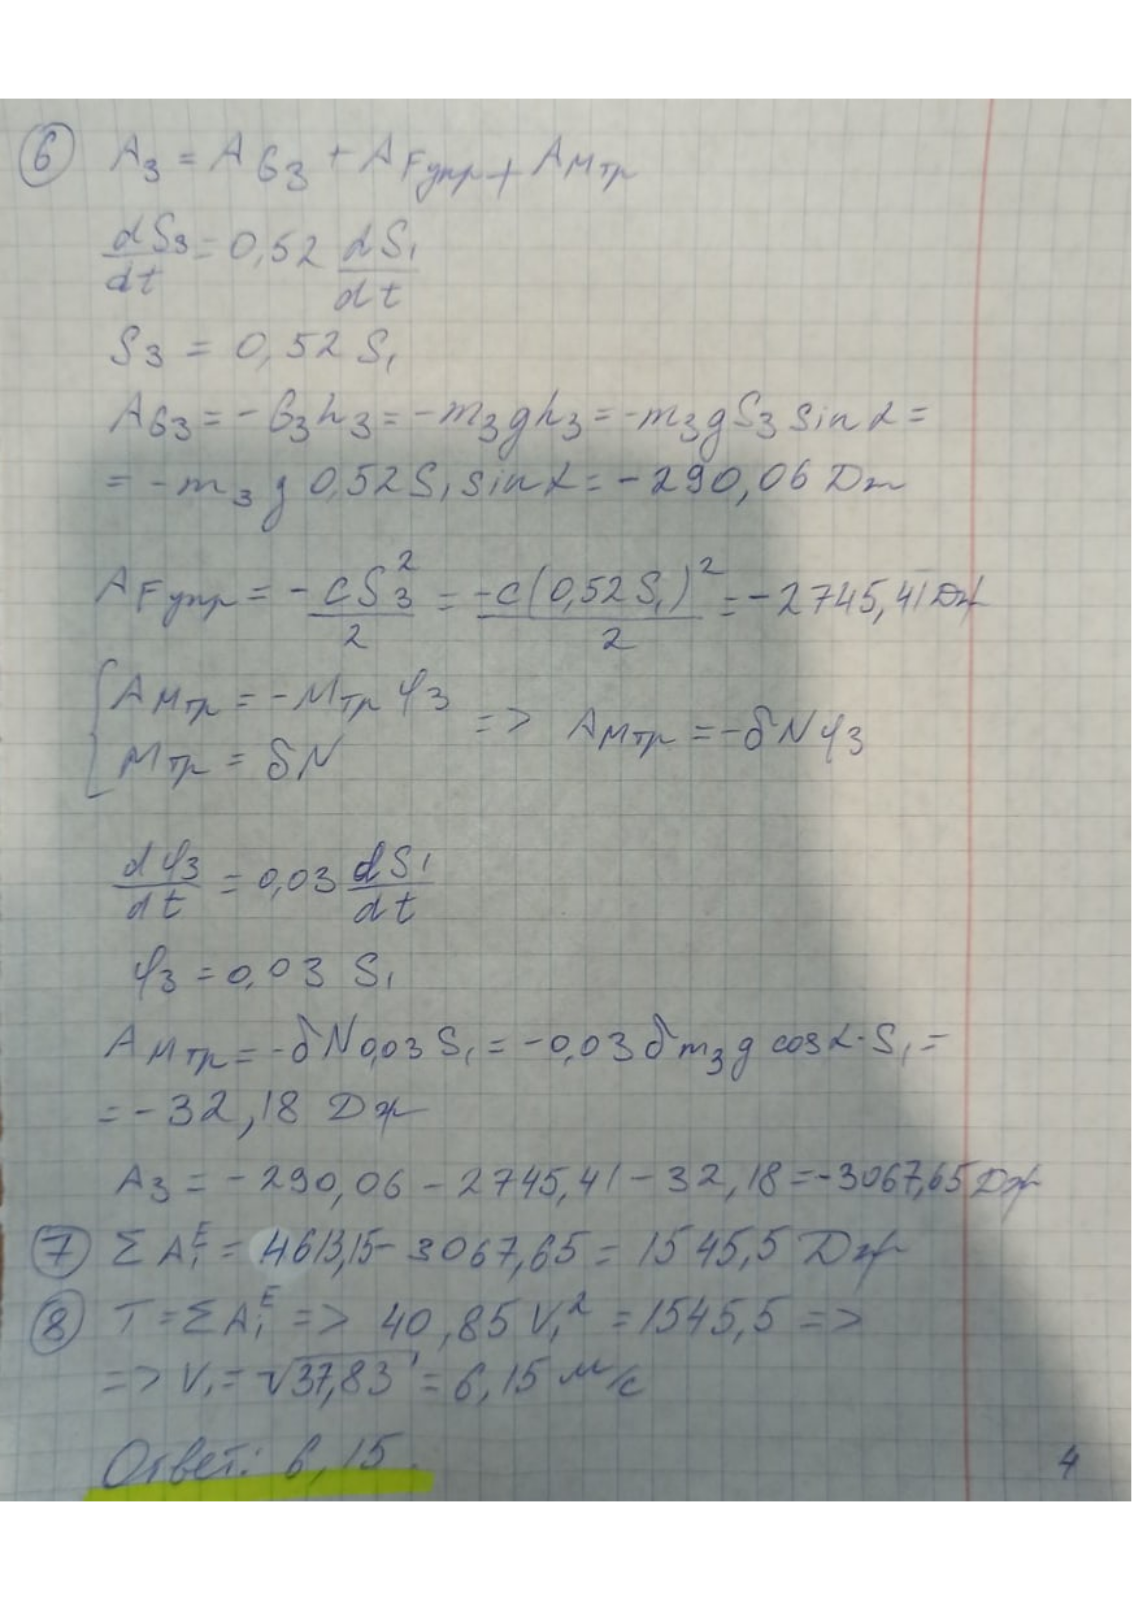 6 A₃ = A G₃ + A Fупр + A Mтр
dS₃/dt = 0,52 dS₁/dt
S₃ = 0,52 S₁
A G₃ = - G₃h₃ = -m₃gh₃ = -m₃gS₃ sin α =
= -m₃ g 0,52S₁ sin α = -290,06 Дж
A Fупр = - cS₃²/2 = -c(0,52S₁)²/2 = -2745,41 Дж
{ A Mтр = -Mтр φ₃
Mтр = δN => A Mтр = -δNφ₃
dφ₃/dt = 0,03 dS₁/dt
φ₃ = 0,03 S₁
A Mтр = -δN0,03 S₁ = -0,03 δm₃g cos α · S₁ =
= -32,18 Дж
A₃ = -290,06 - 2745,41 - 32,18 = -3067,65 Дж
7 ΣAᵢᴱ = 4613,15 - 3067,65 = 1545,5 Дж
8 T = ΣAᵢᴱ => 40,85 V₁² = 1545,5 =>
=> V₁ = √37,83 = 6,15 м/с
Ответ: 6,15.
4